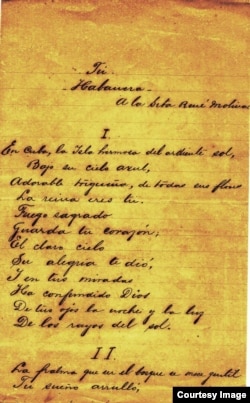 Tú
Habanera
A la Srta René Molina
I.
En Cuba, la Isla hermosa del ardiente sol,
Bajo su cielo azul,
Adorable trigueña, de todas sus flores
La reina eres tu.
Fuego sagrado
Guarda tu corazón;
El claro cielo
Su alegria te dió,
I en tus miradas
Ha confundido Dios
De tus ojos la noche y la luz
De los rayos del sol.
II
La palma que en el bosque se mece gentil
Tu sueño arrulló,
Courtesy Image